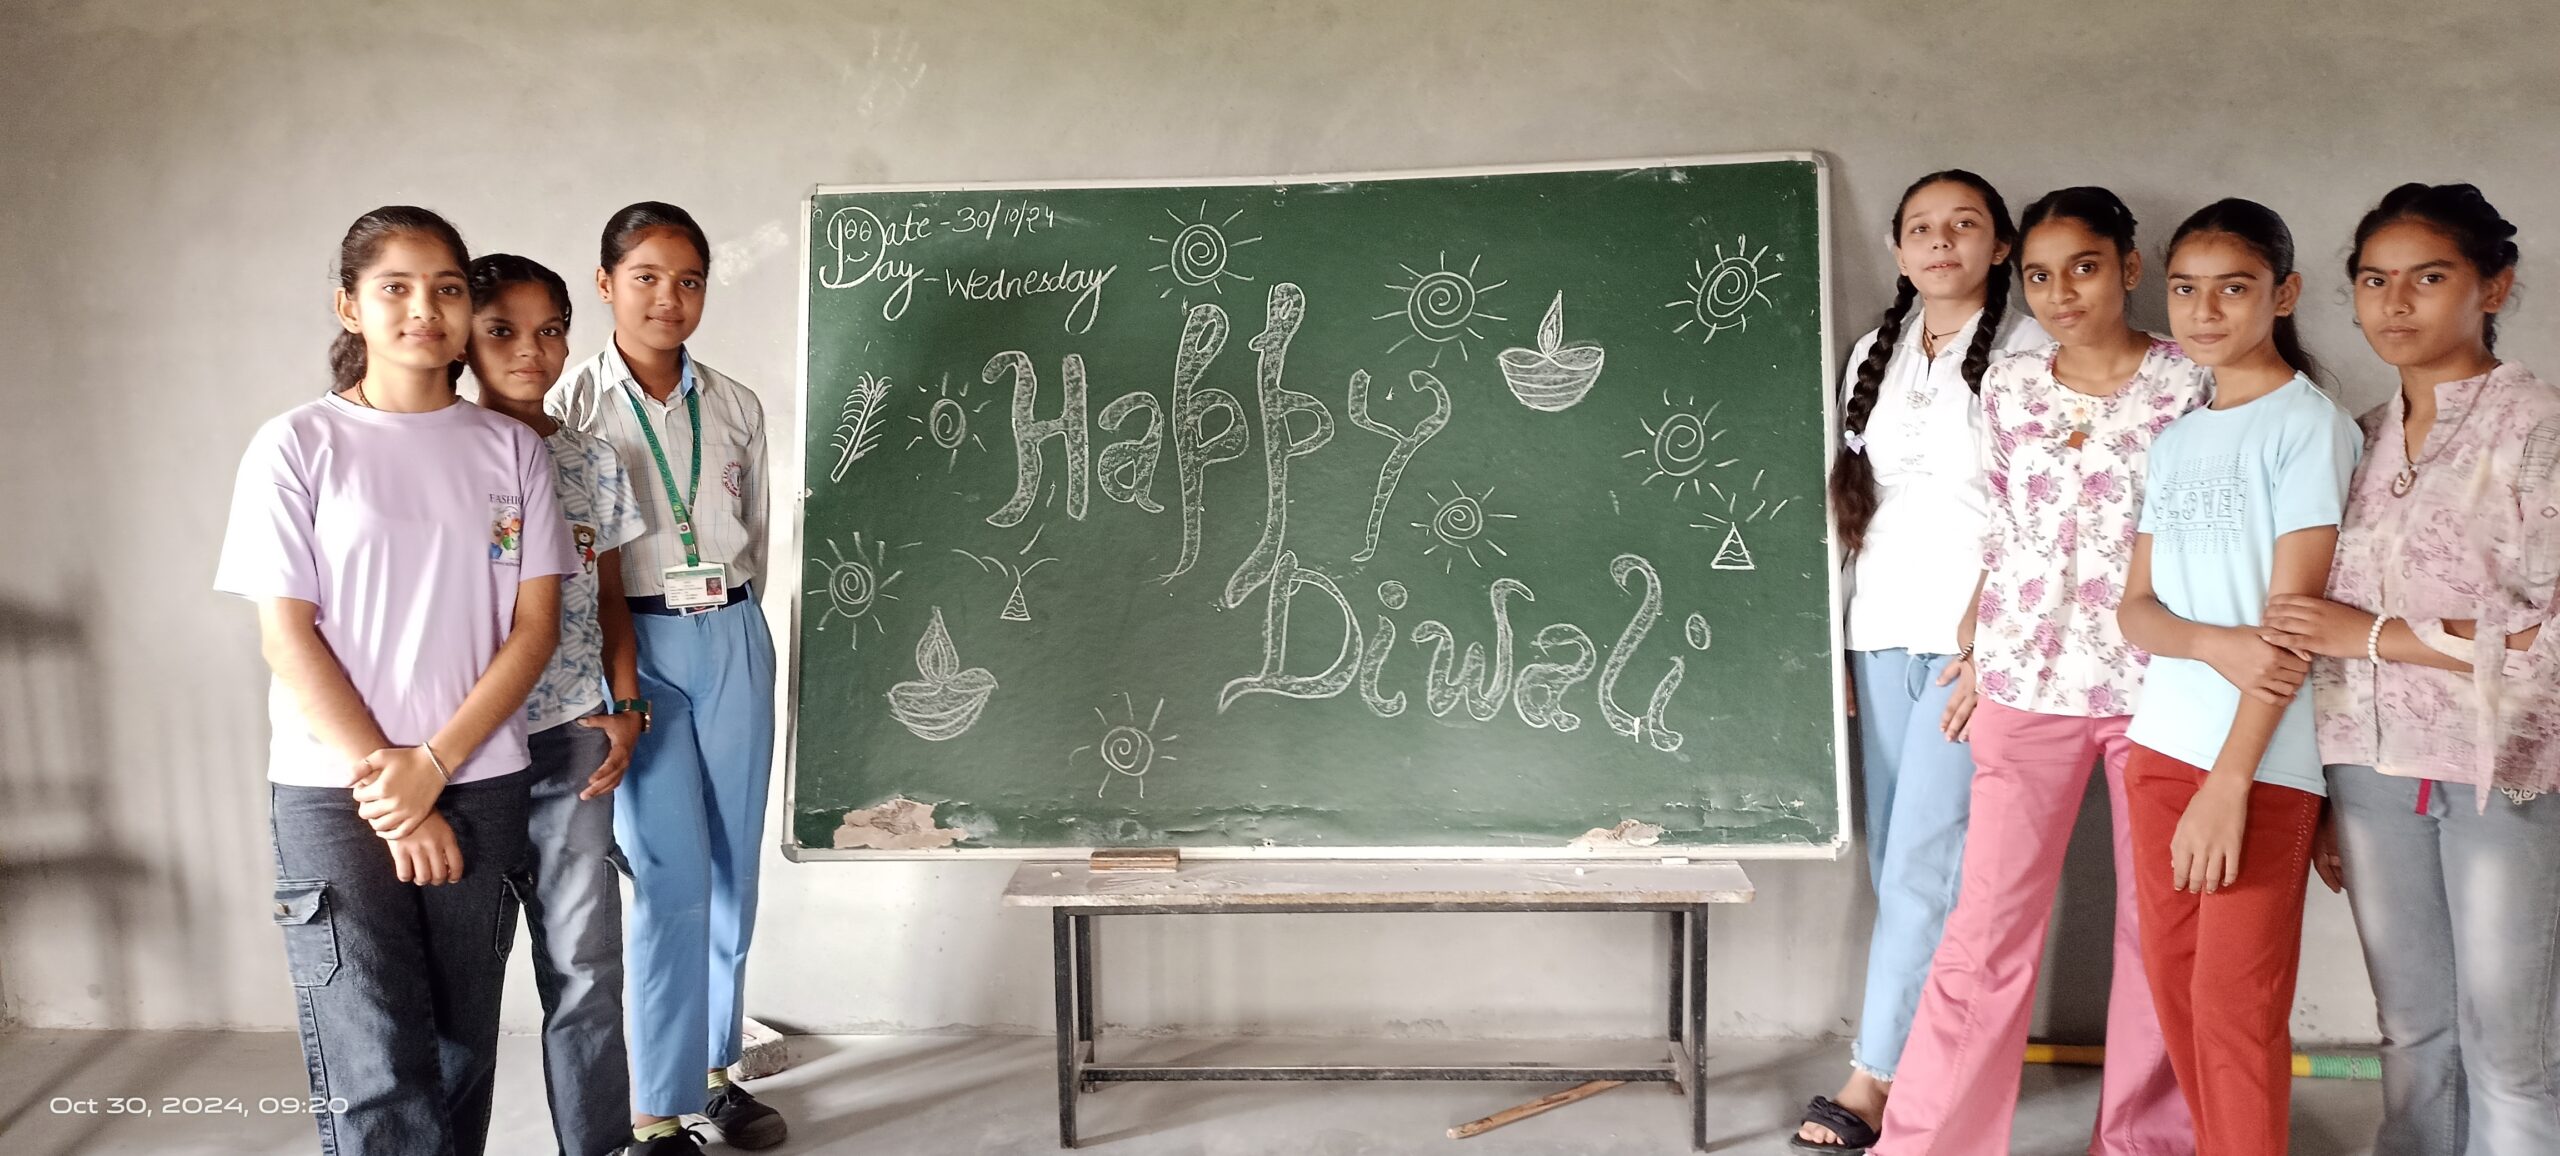 Date - 30/10/24
Day - Wednesday
Happy
Diwali
FASHIO
LOVE
Oct 30, 2024, 09:20